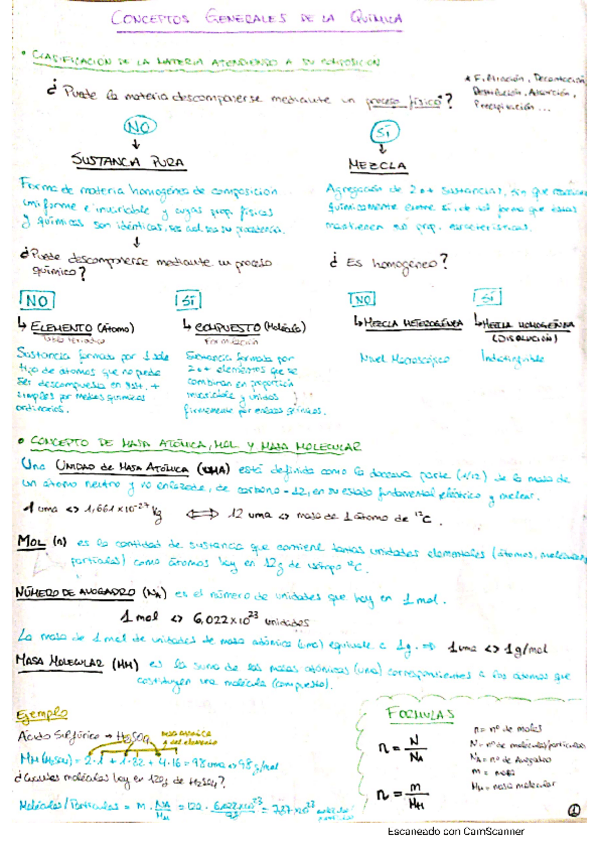 CONCEPTOS GENERALES DE LA QUÍMICA
• CLASIFICACIÓN DE LA MATERIA ATENDIENDO A SU COMPOSICIÓN
¿Puede la materia descomponerse mediante un proceso físico*?
* Filtración, Decantación,
Destilación, Absorción,
Precipitación...
NO
SÍ
SUSTANCIA PURA
MEZCLA
Forma de materia homogénea de composición
uniforme e invariable y cuyas prop. físicas
y químicas son idénticas, sea cual sea su procedencia.
Agregación de 2 o + sustancias, sin que reaccionen
químicamente entre sí, de tal forma que éstas
mantienen sus prop. características.
¿Puede descomponerse mediante un proceso
químico?
¿Es homogéneo?
NO
SÍ
NO
SÍ
↳ ELEMENTO (Átomo)
↳ COMPUESTO (Molécula)
Formulación
↳ MEZCLA HETEROGÉNEA
↳ MEZCLA HOMOGÉNEA
(DISOLUCIÓN)
Sustancia formada por 1 solo
tipo de átomos que no puede
ser descompuesta en sust. +
simples por medios químicos
ordinarios.
Sustancia formada por
2 o + elementos que se
combinan en proporción
invariable y unidos
firmemente por enlaces químicos.
Nivel Macroscópico
Indistinguible
• CONCEPTO DE MASA ATÓMICA, MOL Y MASA MOLECULAR
Una UNIDAD DE MASA ATÓMICA (UMA) está definida como la doceava parte (1/12) de la masa de
un átomo neutro y no enlazado, de carbono-12, en su estado fundamental eléctrico y nuclear.
1 uma <> 1,661×10⁻²⁷ kg ⟺ 12 uma <> masa de 1 átomo de ¹²C.
MOL (n) es la cantidad de sustancia que contiene tantas unidades elementales (átomos, moléculas,
partículas) como átomos hay en 12g de isótopo ¹²C.
NÚMERO DE AVOGADRO (NA) es el número de unidades que hay en 1 mol.
1 mol <> 6,022×10²³ unidades
La masa de 1 mol de unidades de masa atómica (uma) equivale a 1g. ⇒ 1 uma <> 1 g/mol
MASA MOLECULAR (MM) es la suma de las masas atómicas (uma) correspondientes a los átomos que
constituyen una molécula (compuesto).
Ejemplo
Ácido Sulfúrico → H₂SO₄
masa atómica
del elemento
MM (H₂SO₄) = 2·1 + 1·32 + 4·16 = 98 uma ↔ 98 g/mol
¿Cuántas moléculas hay en 120g de H₂SO₄?
Moléculas/Partículas = m · NA/MM
FORMULAS
n = N/NA
n = m/MM
n = nº de moles
N = nº de moléculas/partículas
NA = nº de Avogadro
m = masa
MM = masa molecular
1
Escaneado con CamScanner